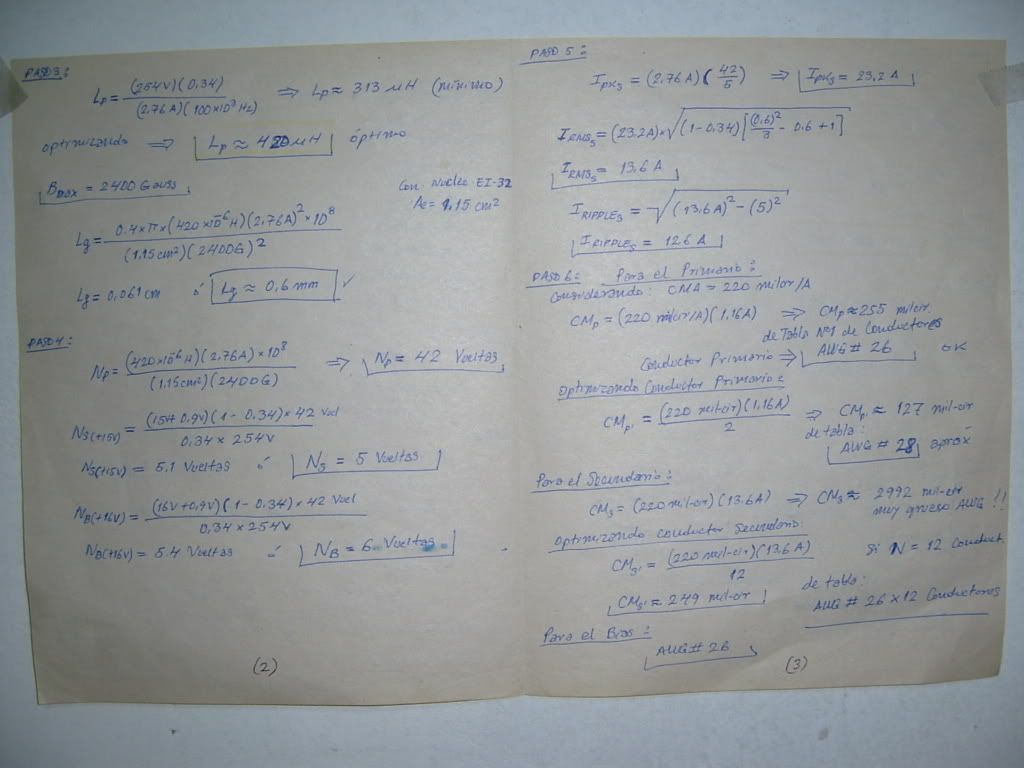 PASO 3:
Lp = (254V)(0,34) / (2,76A)(100x10³ Hz) ⇒ Lp ≈ 313 μH (mínimo)
optimizando ⇒ Lp ≈ 420 μH óptimo
Bmax = 2400 Gauss
Con Nucleo EI-32
Ae = 1.15 cm²
Lg = 0.4 x π x (420 x10⁻⁶ H)(2,76A)² x 10⁸ / (1.15 cm²)(2400G)²
Lg = 0,061 cm ó Lg ≈ 0,6 mm ✓
PASO 4:
Np = (420x10⁻⁶ H)(2,76A) x 10⁸ / (1.15 cm²)(2400G) ⇒ Np = 42 Vueltas
Ns(+15V) = (15+0,9V)(1-0,34) x 42 Vuel / 0,34 x 254V
Ns(+15V) = 5.1 Vueltas ó Ns = 5 Vueltas
NB(+16V) = (16V+0,9V)(1-0,34) x 42 Vuel / 0,34 x 254V
NB(+16V) = 5.4 Vueltas ó NB = 6 Vueltas
(2)
PASO 5:
Ipks = (2,76A)(42/5) ⇒ Ipks = 23,2 A
IRMSs = (23,2A) x √(1-0,34)[(0,6)²/3 - 0.6 + 1]
IRMSs = 13,6 A
IRIPPLEs = √(13,6A)² - (5)²
IRIPPLEs = 12,6 A
PASO 6: Para el Primario:
Considerando: CMA = 220 milcir/A
CMp = (220 milcir/A)(1,16A) ⇒ CMp ≈ 255 milcir
de Tabla Nº1 de Conductores
Conductor Primario ⇒ AWG # 26 OK
Optimizando Conductor Primario:
CMp' = (220 mil-cir)(1,16A) / 2 ⇒ CMp' ≈ 127 mil-cir
de tabla:
AWG # 28 aprox
Para el Secundario:
CMs = (220 mil-cir)(13,6A) ⇒ CMs ≈ 2992 mil-cir
muy grueso AWG !!
Optimizando conductor Secundario:
CMs' = (220 mil-cir)(13,6A) / 12 Si N = 12 Conduct
CMs' ≈ 249 mil-cir
de tabla:
AWG # 26 x 12 Conductores
Para el Bias:
AWG # 26
(3)